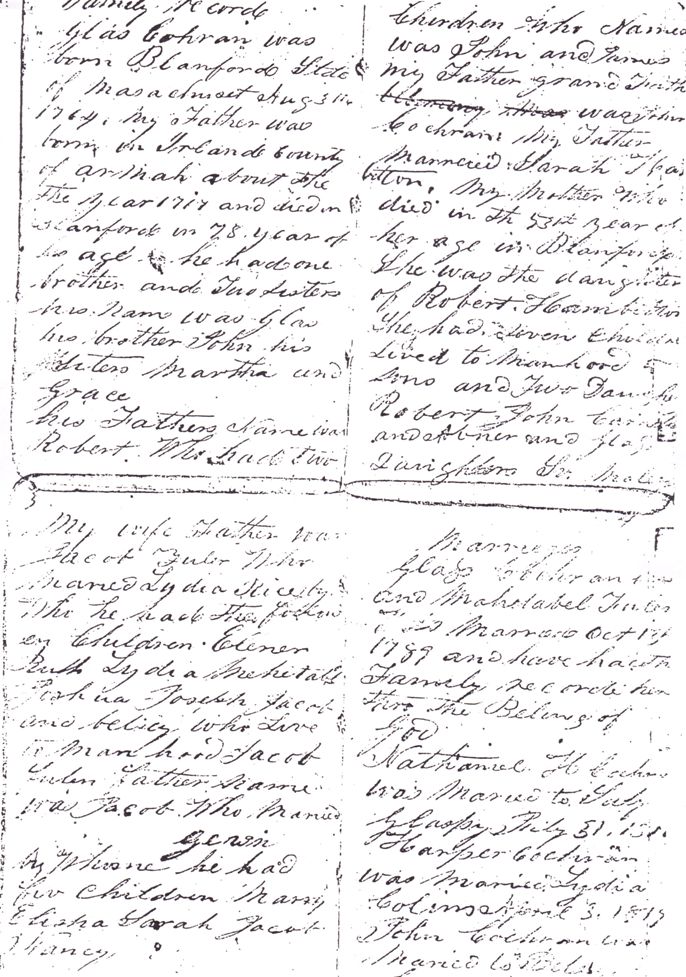 Family Record
Glas Cohran was
born Blanford State
of Masachuset Aug 31
1764. My Father was
born in Irland County
of arMah about the
the year 1717 and died in
Blanford in 78 year of
his age he had one
brother and Two Sisters
his nam was Glas
his brother John his
Sisters Martha and
Grace
his Fathers Name was
Robert. Who had two
Children Who Named
was John and James
my Father grand Fath
was John
Cochran. My Father
Marreied Sarah Ha
ilton. My Mother Who
died in th 53st year of
her age in Blanford
She was the daughter
of Robert. Hambelton
She had Eleven Childn
Lived to Manhood 5
Sons and Two Daughe
Robert John
and Abner and Glas
Daughters
My wife Father was
Jacob Fuler Who
Maried Lydia
Who he had the follow
en Children. Elener
Ruth Lydia Mehitabl
Joshua Joseph Jacob
and betsey who Live
to Manhood Jacob
Fuler Father Name
was Jacob Who Maried
gewin
By Whome he had
fiv Children Mary
Elisha Sarah Jacob
Nancy
Marriages
Glass Cochran
and Mahetabel Fuler
Married Oct 19
1789 and have hadth
Famely recorde her
thro The Belings of
God
Nathaniel H Cochn
was Maried to July
Glaspy July 31. 181
Harper Cochran
was Maried Lydia
Colins April 3. 1819
John Cochran was
Maried to